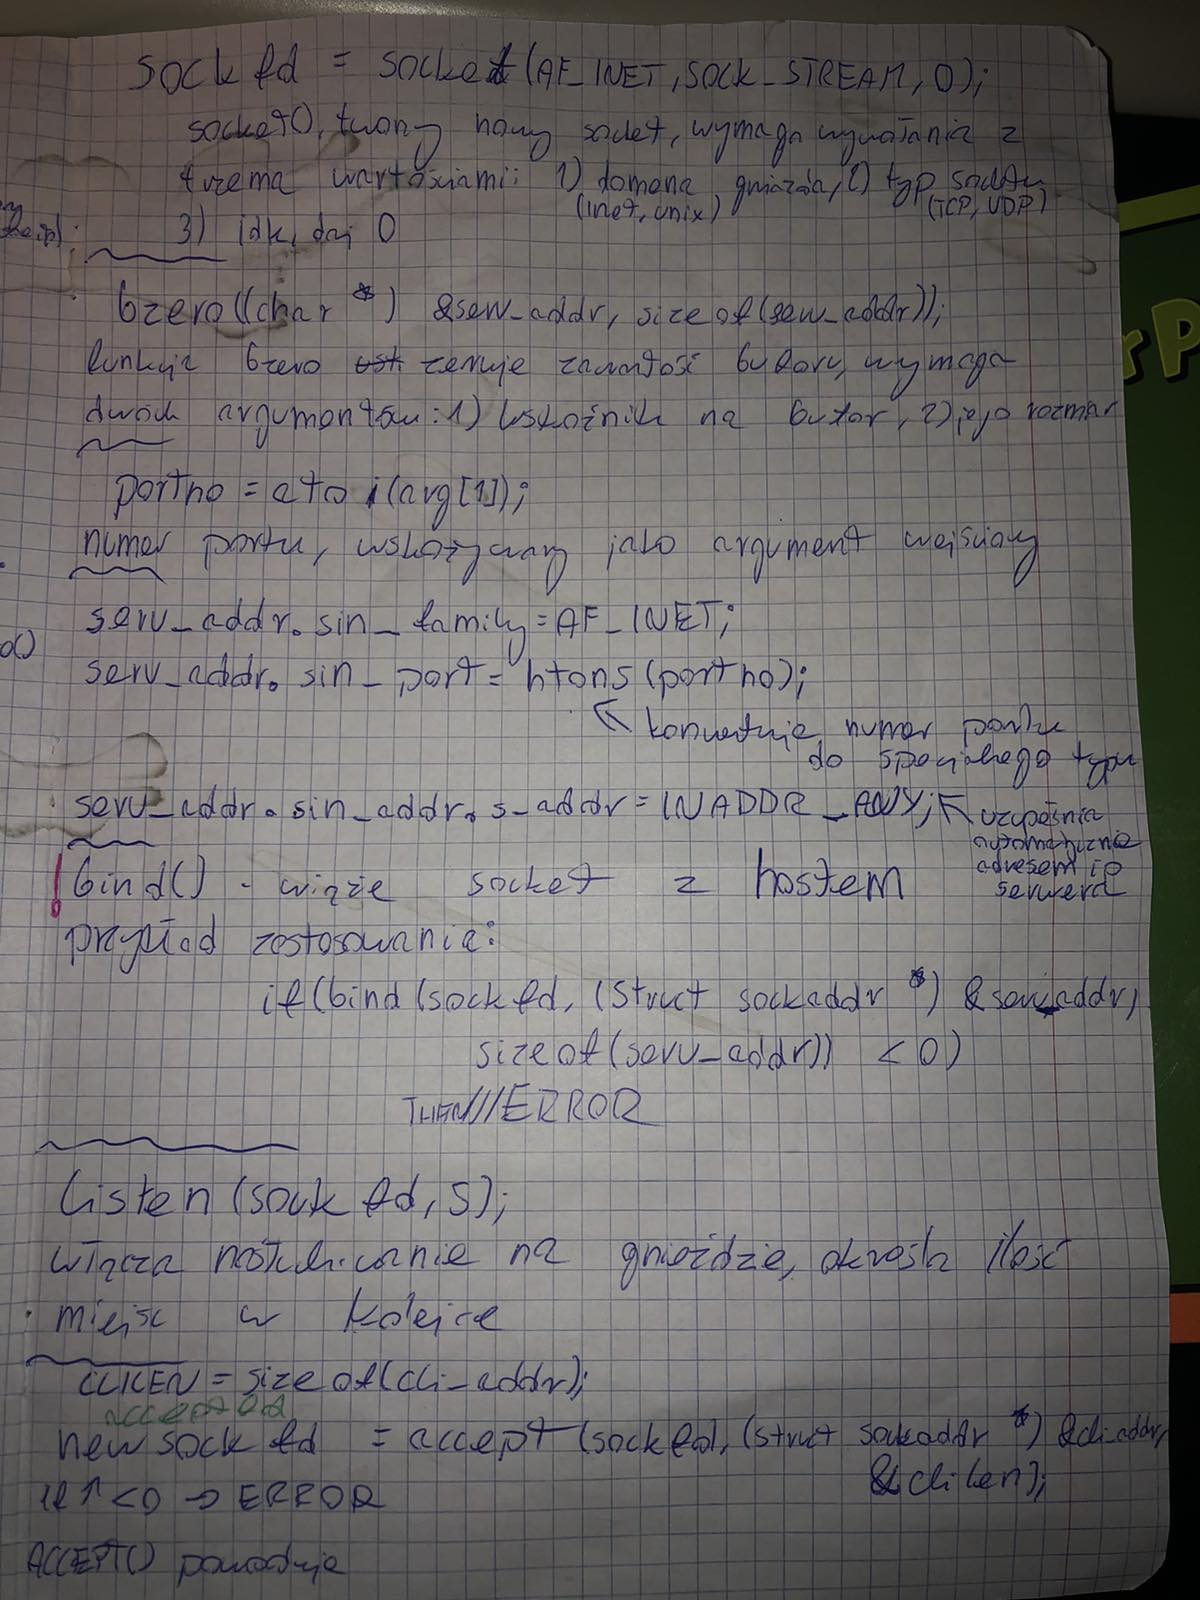 sockfd = socket(AF_INET, SOCK_STREAM, 0);
socket(), tworzy nowy socket, wymaga wywołania z
trzema wartościami: 1) domena gniazda, 2) typ socketu
(inet, unix) (TCP, UDP)
3) idk, daj 0
bzero((char *) &serv_addr, sizeof(serv_addr));
funkcja bzero zeruje zawartość bufora, wymaga
dwóch argumentów: 1) wskaźnik na bufor, 2) jego rozmiar
portno = atoi(arg[1]);
numer portu, wskazywany jako argument wejściowy
serv_addr.sin_family = AF_INET;
serv_addr.sin_port = htons(portno);
konwertuje numer portu
do specjalnego typu
serv_addr.sin_addr.s_addr = INADDR_ANY; uzupełnia
automatycznie
adresem ip
serwera
! bind() - wiąże socket z hostem
przykład zastosowania:
if(bind(sockfd, (struct sockaddr *) &serv_addr,
sizeof(serv_addr)) < 0)
THEN///ERROR
listen(sockfd, 5);
włącza nasłuchiwanie na gnieździe, określa ilość
miejsc w kolejce
CLILEN = sizeof(cli_addr);
newsockfd = accept(sockfd, (struct sockaddr *) &cli_addr,
&clilen);
if ↑ <0 → ERROR
ACCEPT() powoduje